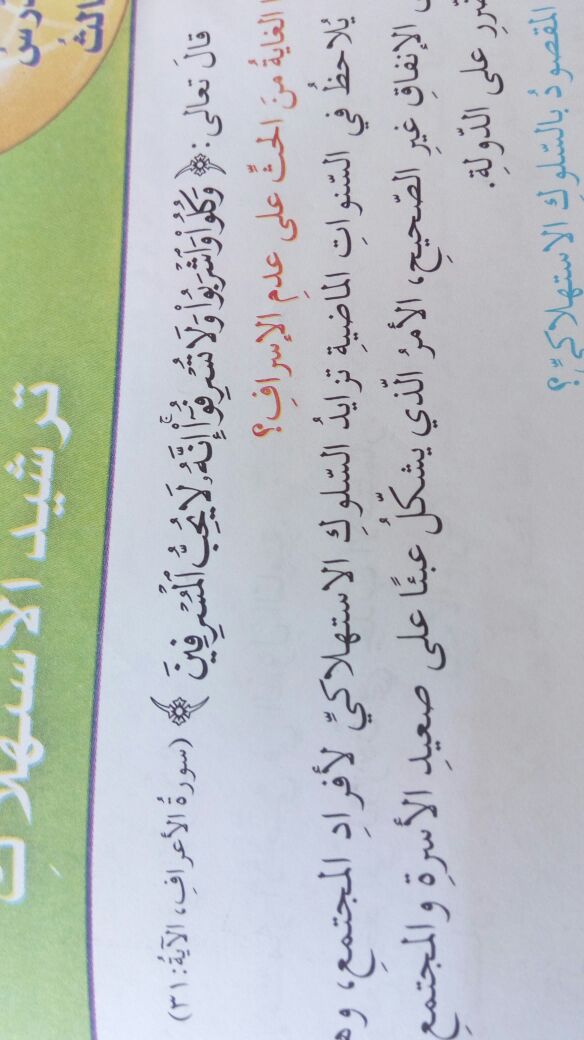 الثّ
ترشيد الاستهلاك
قالَ تعالى: ﴿ وَكُلُواْ وَاشْرَبُواْ وَلَا تُسْرِفُوٓاْ ۚ إِنَّهُۥ لَا يُحِبُّ ٱلْمُسْرِفِينَ ﴾ (سورةُ الأعرافِ، الآيةُ: ٣١)
الغايةُ منَ الحثِّ على عدمِ الإسرافِ؟
يُلاحظُ في السّنواتِ الماضيةِ تزايدُ السّلوكِ الاستهلاكيِّ لأفرادِ المجتمعِ،
الإنفاقِ غيرِ الصّحيحِ، الأمرُ الّذي يشكّلُ عبئًا على صعيدِ الأسرةِ والمجتمعِ
على الدّولةِ.
المقصودُ بالسّلوكِ الاستهلاكيِّ؟